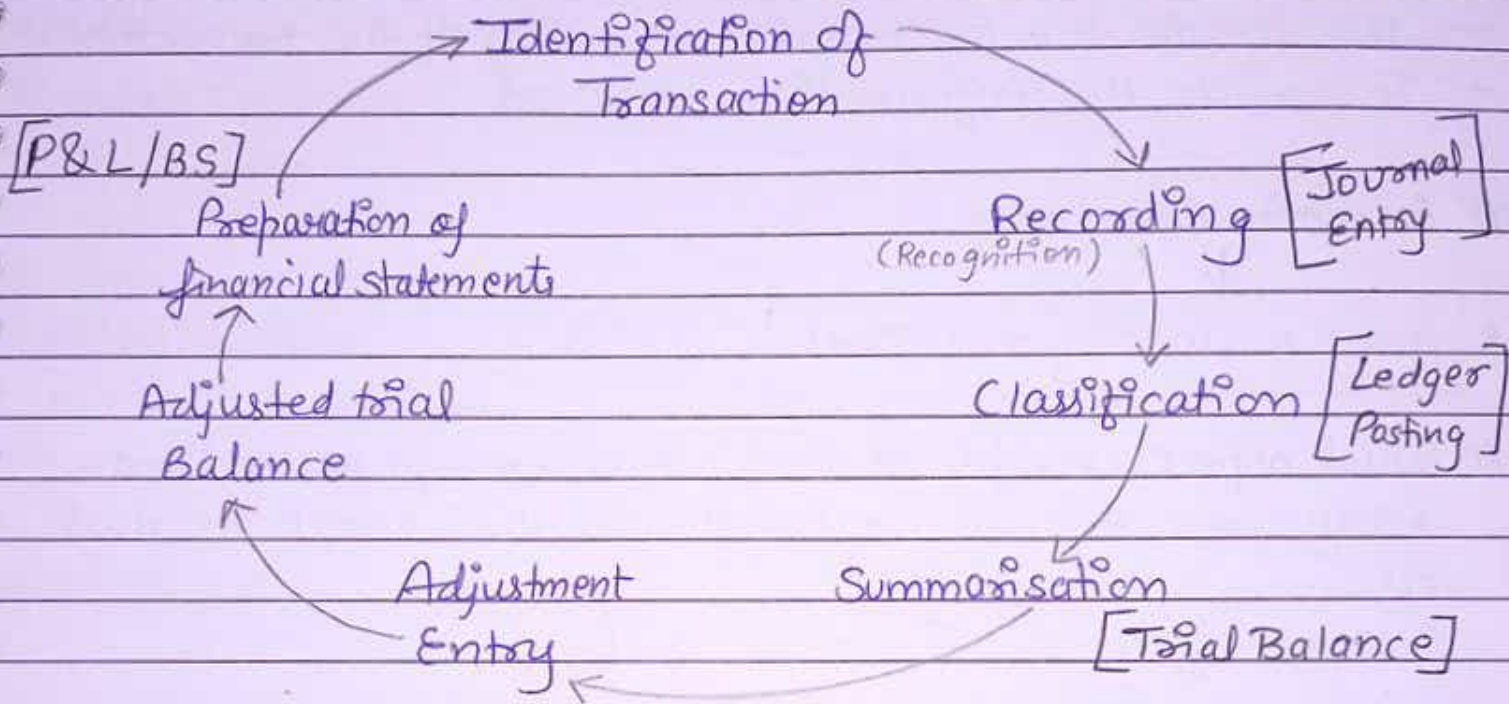 Identification of
Transaction
Recording [Journal
Entry]
(Recognition)
Classification [Ledger
Posting]
Summarisation
[Trial Balance]
Adjustment
Entry
Adjusted trial
Balance
Preparation of
financial statements
[P&L/BS]